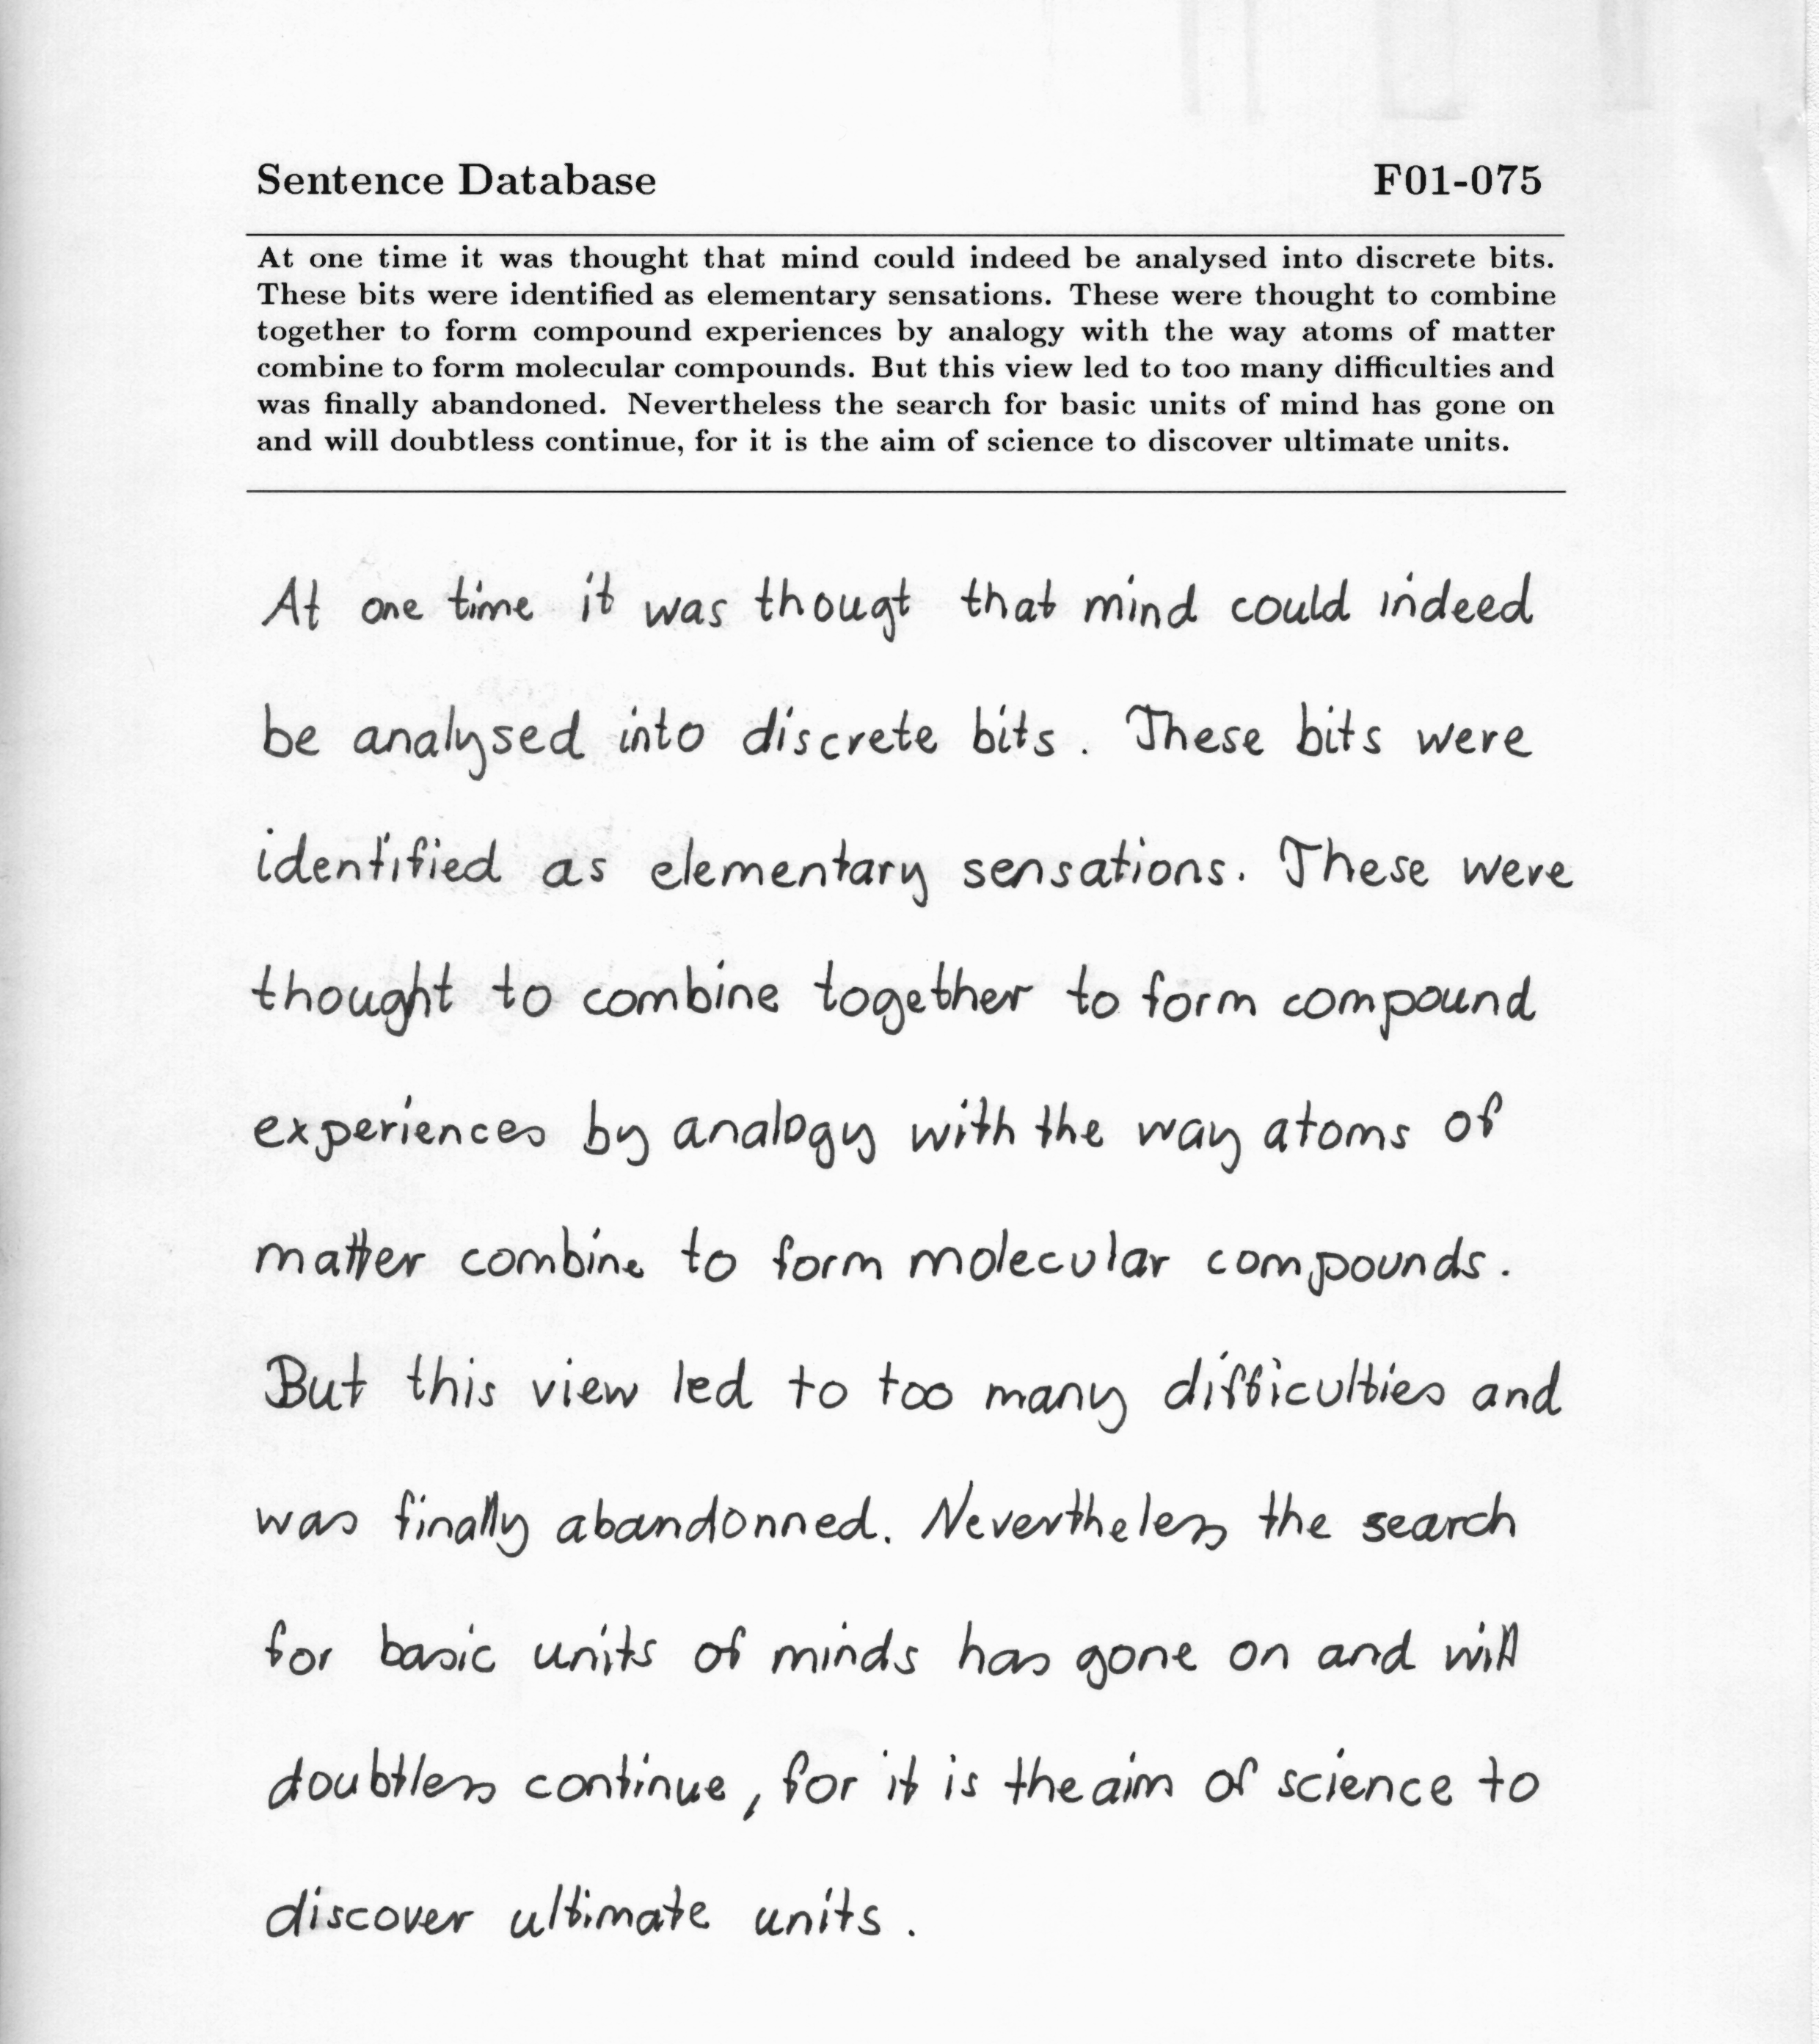 Sentence Database F01-075
At one time it was thought that mind could indeed be analysed into discrete bits.
These bits were identified as elementary sensations. These were thought to combine
together to form compound experiences by analogy with the way atoms of matter
combine to form molecular compounds. But this view led to too many difficulties and
was finally abandoned. Nevertheless the search for basic units of mind has gone on
and will doubtless continue, for it is the aim of science to discover ultimate units.
At one time it was thougt that mind could indeed
be analysed into discrete bits. These bits were
identified as elementary sensations. These were
thought to combine together to form compound
experiences by analogy with the way atoms of
matter combine to form molecular compounds.
But this view led to too many difficulties and
was finally abandonned. Nevertheless the search
for basic units of minds has gone on and will
doubtless continue, for it is the aim of science to
discover ultimate units.